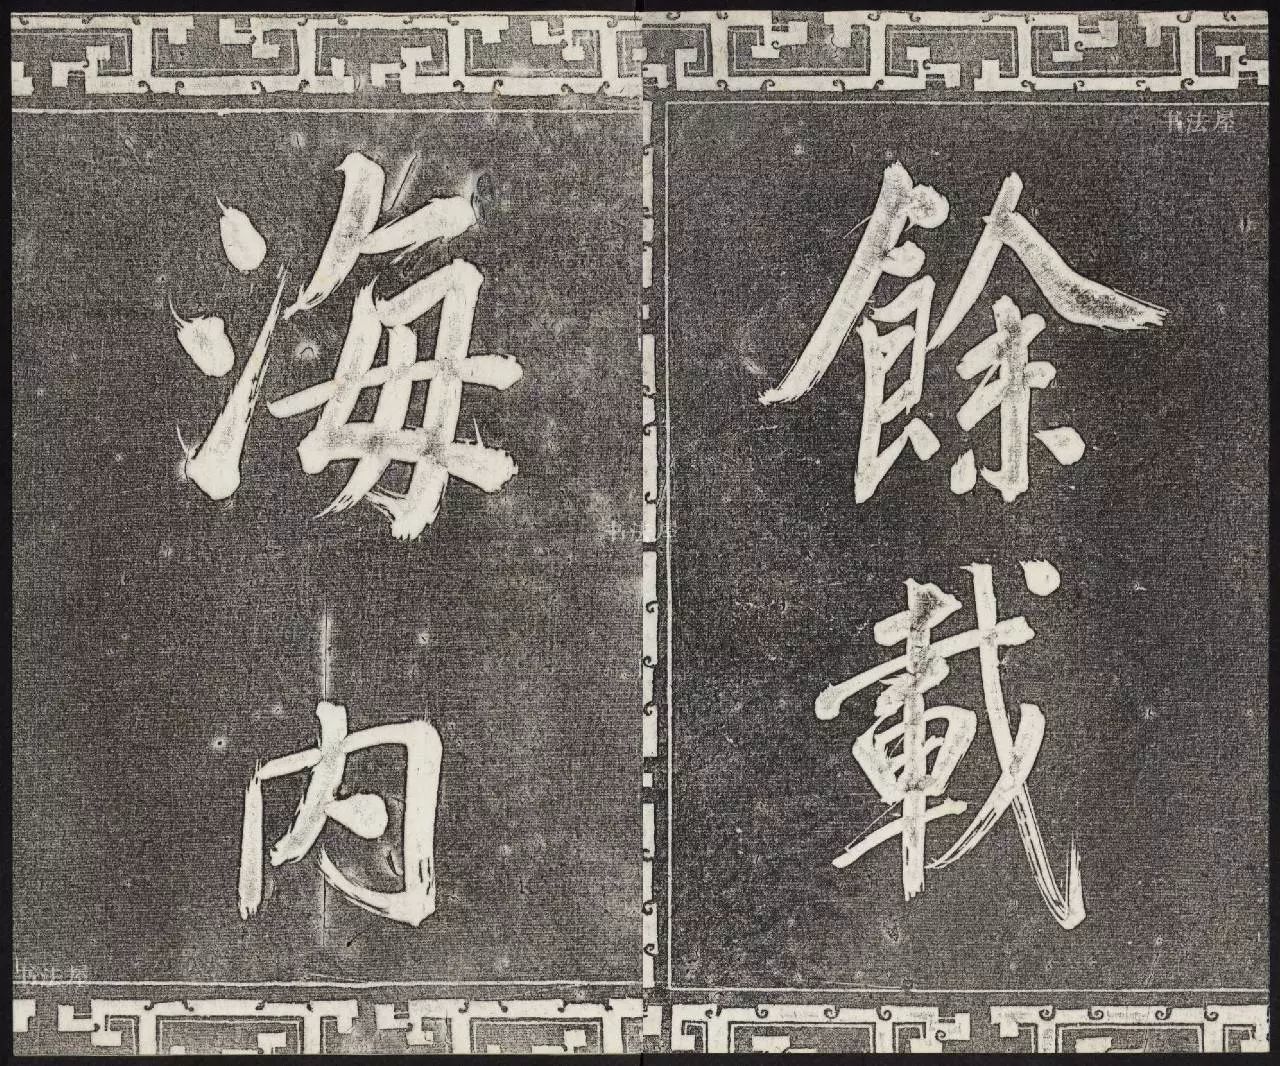 餘載
海内
书法屋
书法屋
书法屋